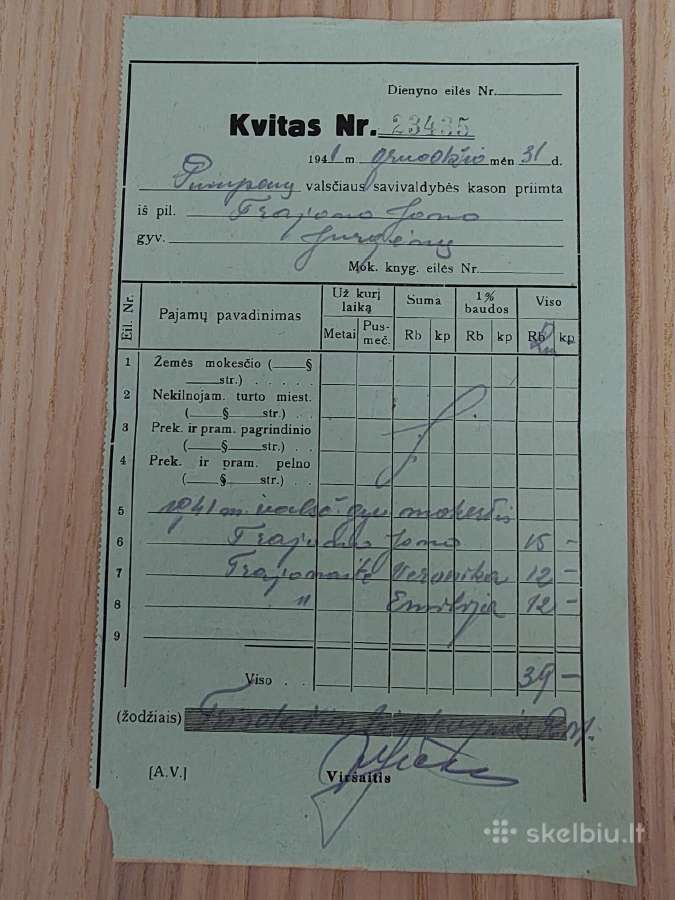 Dienyno eilės Nr.
Kvitas Nr. 23435
1941 m gruodžio mėn 31 d.
Pumpėnų valsčiaus savivaldybės kason priimta
iš pil. Trajono Jono
gyv.
Mok. knyg. eilės Nr.
Eil. Nr. Pajamų pavadinimas Už kurį laiką Suma 1% baudos Viso
Metai Pus-meč. Rb kp Rb kp Rb kp
1 Žemės mokesčio (—§
—str.) . . . . .
2 Nekilnojam. turto miest.
(—§ —str.) . .
3 Prek. ir pram. pagrindinio
(—§ —str.) . .
4 Prek. ir pram. pelno
(—§ —str.) . .
5 1941 m. valsč. gyv mokestis
6 Trajono Jono 15 –
7 Trajonaitė Veronika 12 –
8 " Emilija 12 –
9
Viso . . 39 –
(žodžiais) Trisdešimt devynios
[A.V.] Viršaitis
skelbiu.lt